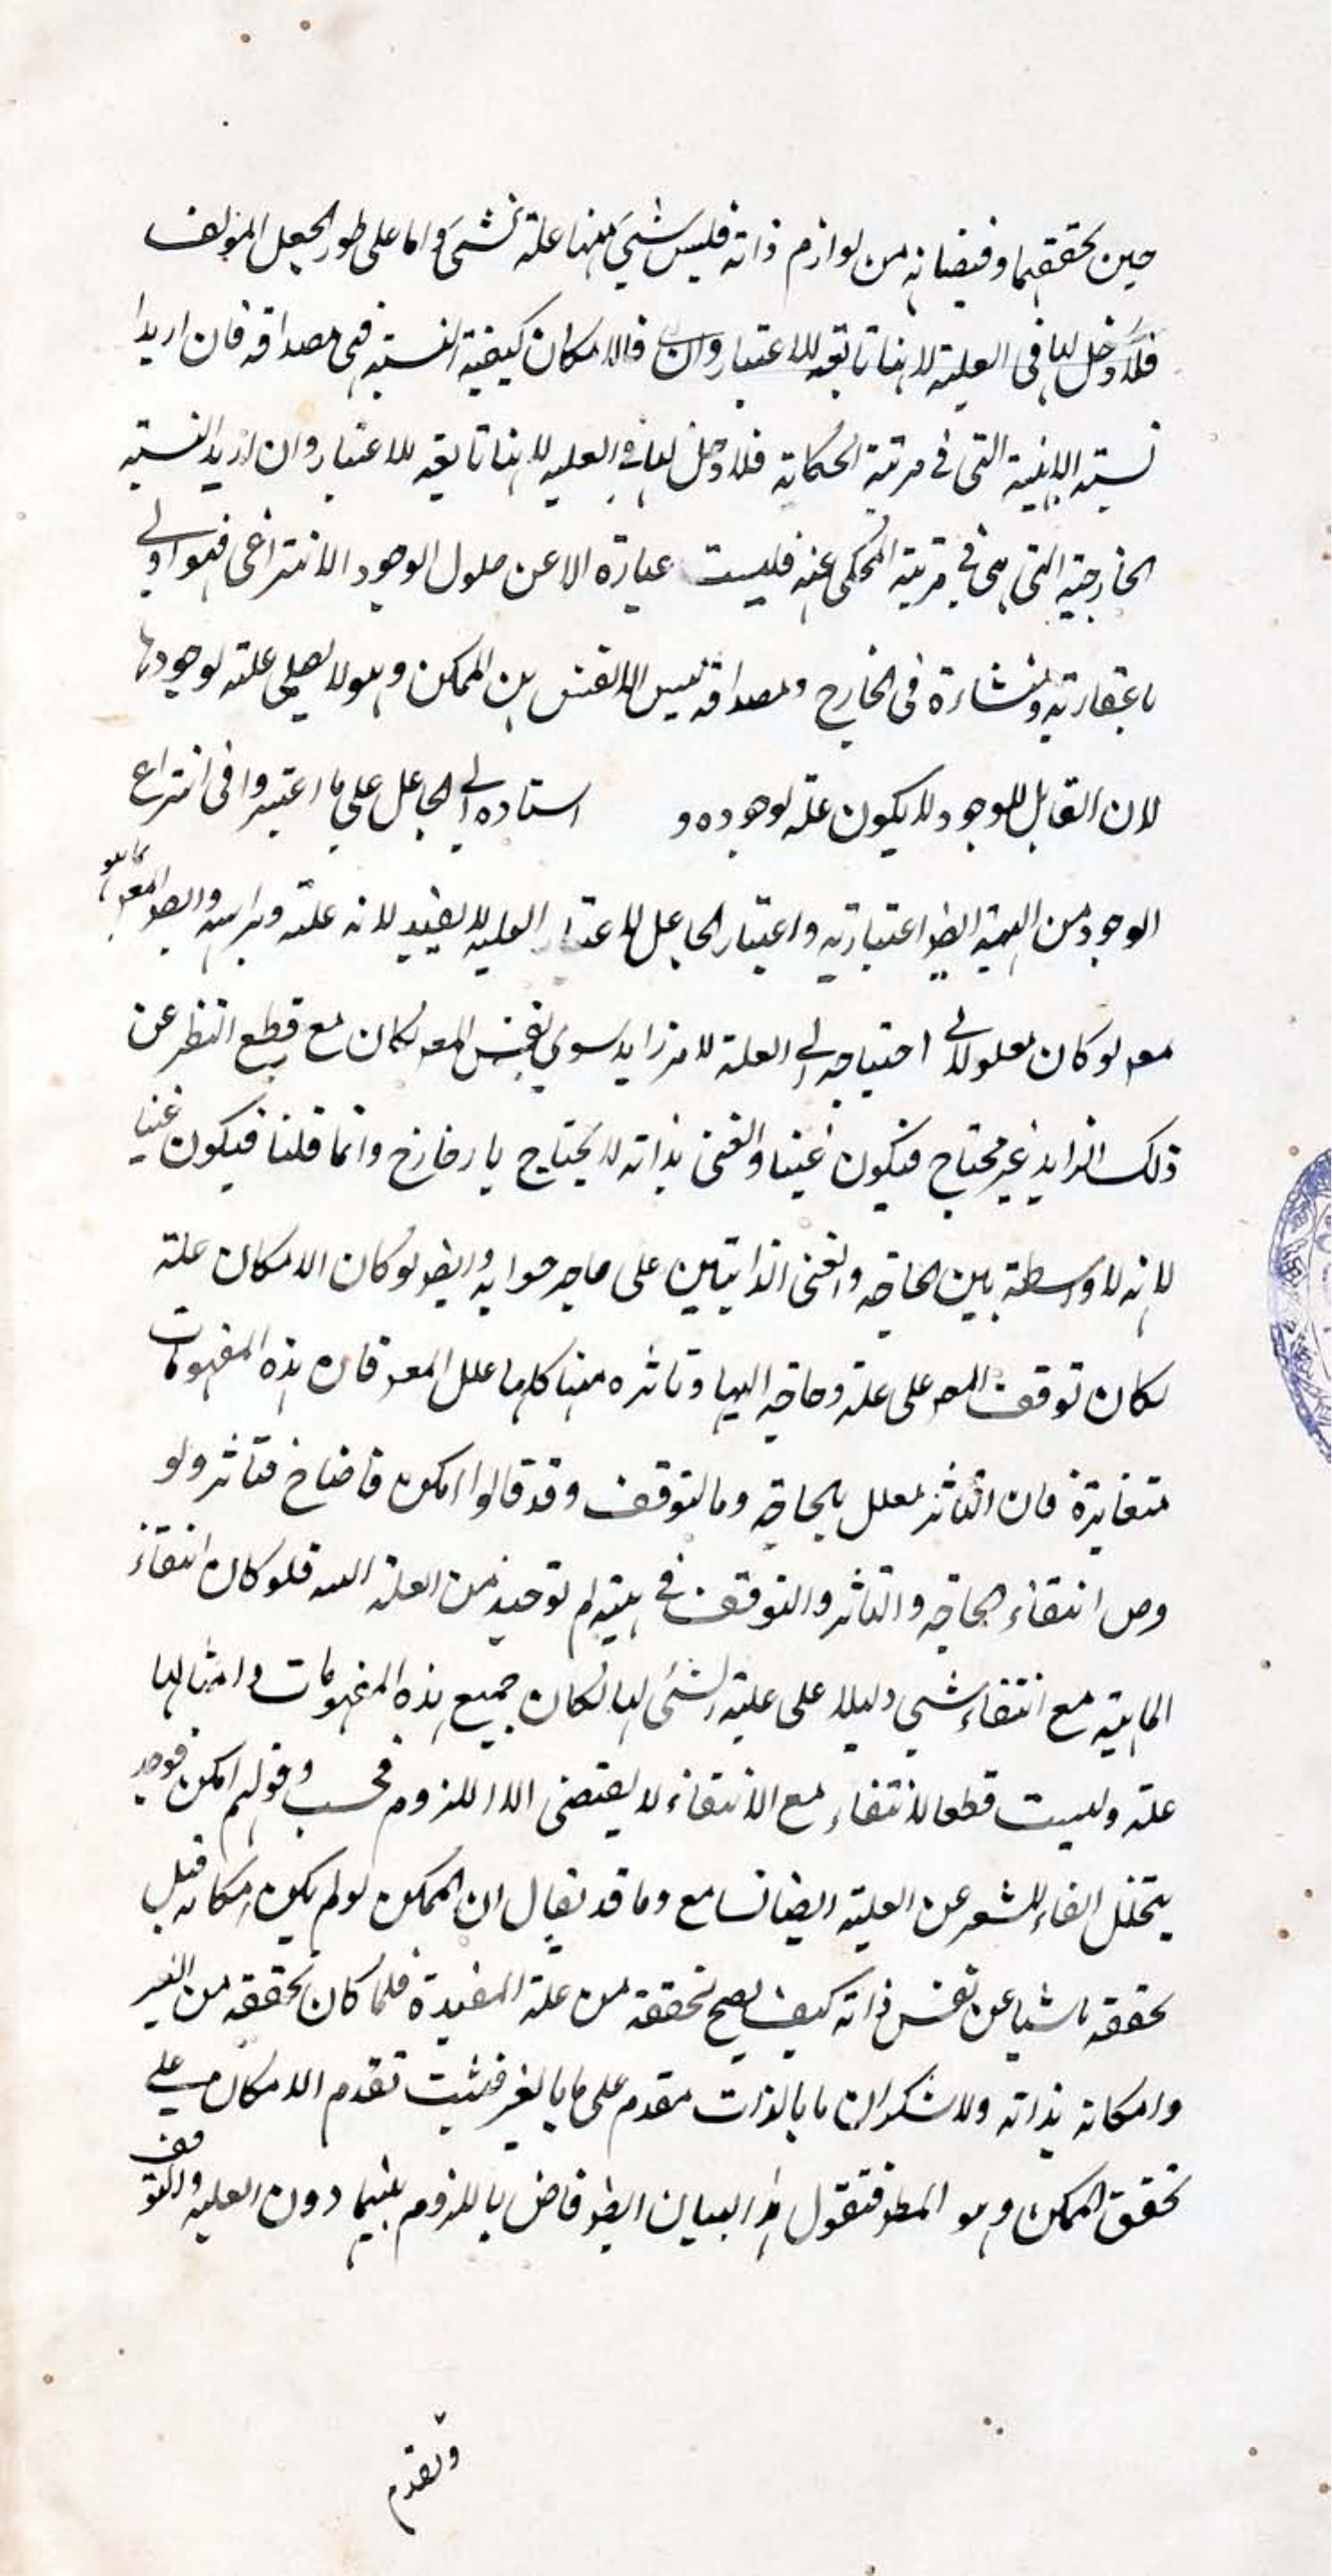 حين تحققهما وفيضانه من لوازم ذاته فليس شيئ منها علة لشئ واما على طور الجعل المؤلف
فلا دخل لها في العلية لانها تابعة للاعتبار وان فالامكان كيفية النسبة فهى مصداقه فان اريدا
نسبة الذهنية التى في مرتبة الحكاية فلا دخل لها في العلية لانها تابعة للاعتبار وان اريد النسبة
الخارجية التى هى في مرتبة المحكى عنه فليست عبارة الا عن حلول الوجود الانتزاعى فهو اولى
باعتباريته ومنشاءه في الخارج ومصداقه ليس الا نفس الممكن وهو لا يصلح علة لوجودها
لان القابل للوجود لا يكون علة لوجوده و استناده الى الجاعل على ما اعتبروا في انتزاع
الوجود من المهية ايضا اعتبارية واعتبار الجاعل لاعتبار العلية لا يفيد لانه علة براسه وايضا المعر كما هو
معر لو كان معلولا في احتياجه الى العلة لامر زايد سوى نفس المعر لكان مع قطع النظر عن
ذلك الزايد غير محتاج فيكون غنيا والغنى بذاته لا يحتاج وانما قلنا فيكون غنيا
لانه لا واسطة بين الحاجة والغنى الذاتيين على ما صرحوا به وايضا لو كان الامكان علة
لكان توقف المعر على علة وحاجة اليها وتاثره منها كلها علل المعر فان هذه المفهومات
متغايرة فان التاثر معلل بالحاجة وبالتوقف وقد قالوا امكن فاحتاج فتاثر ولو
وض انتفاء الحاجة والتاثر والتوقف في مهية لم توجد من العلة البتة فلو كان انتفاء
الماهية مع انتفاء شيئ دليلا على علية الشئ لها لكان جميع هذه المفهومات وامثالها
علة وليست قطعا لانتفاء مع الانتفاء لا يقتضى الا اللزوم فحسب وقولهم امكن فوجد
بتخلل الفاء المشعر عن العلية ايضا تسامح وما قد يقال ان الممكن لو لم يكن امكانه قبل
تحققه ناشيا عن نفس ذاته كيف يصح تحققه من علة المفيدة فلما كان تحققه من الغير
وامكانه بذاته ولا شك ان ما بالذات مقدم على ما بالغير فثبت تقدم الامكان على
تحقق الممكن وهو المطر فنقول هذا البيان ايضا قاض باللزوم بينهما دون العلية والتوقف
وتقدم